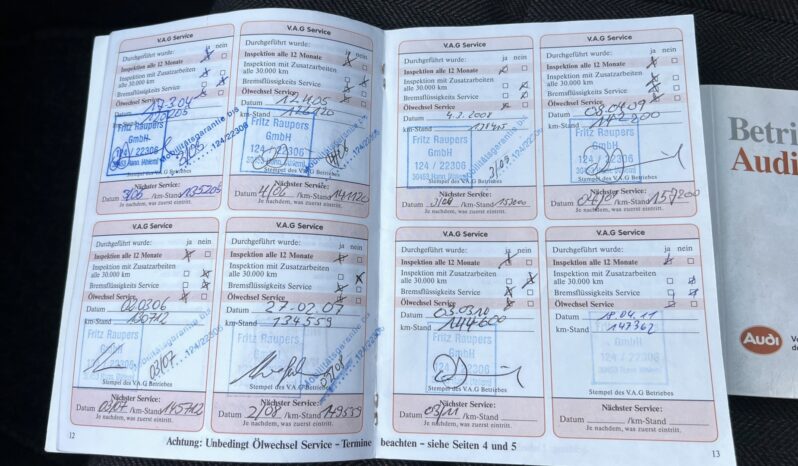 V.A.G Service
Durchgeführt wurde: ja nein
Inspektion alle 12 Monate
Inspektion mit Zusatzarbeiten
alle 30.000 km
Bremsflüssigkeits Service
Ölwechsel Service
Datum 17.3.04
km-Stand
Fritz Raupers
GmbH
124 / 22306
Stempel des V.A.G Betriebes
Nächster Service:
Datum 3/05 /km-Stand 135205
Je nachdem, was zuerst eintritt.
V.A.G Service
Durchgeführt wurde: ja nein
Inspektion alle 12 Monate
Inspektion mit Zusatzarbeiten
alle 30.000 km
Bremsflüssigkeits Service
Ölwechsel Service
Datum 12.4.05
km-Stand 126120
Fritz Raupers
GmbH
124 / 22306
Stempel des V.A.G Betriebes
Nächster Service:
Datum 4/06 /km-Stand 141120
Je nachdem, was zuerst eintritt.
V.A.G Service
Durchgeführt wurde: ja nein
Inspektion alle 12 Monate
Inspektion mit Zusatzarbeiten
alle 30.000 km
Bremsflüssigkeits Service
Ölwechsel Service
Datum
km-Stand 130712
Fritz Raupers
GmbH
124 / 22306
03/07
Stempel des V.A.G Betriebes
Nächster Service:
Datum 03/07 /km-Stand 145712
Je nachdem, was zuerst eintritt.
V.A.G Service
Durchgeführt wurde: ja nein
Inspektion alle 12 Monate
Inspektion mit Zusatzarbeiten
alle 30.000 km
Bremsflüssigkeits Service
Ölwechsel Service
Datum 27.02.07
km-Stand 134559
Fritz Raupers
GmbH
124 / 22306
Stempel des V.A.G Betriebes
Nächster Service:
Datum 2/08 /km-Stand 149559
Je nachdem, was zuerst eintritt.
12
Achtung: Unbedingt Ölwechsel Service – Termine beachten – siehe Seiten 4 und 5
V.A.G Service
Durchgeführt wurde: ja nein
Inspektion alle 12 Monate
Inspektion mit Zusatzarbeiten
alle 30.000 km
Bremsflüssigkeits Service
Ölwechsel Service
Datum 4.3.2008
km-Stand
Fritz Raupers
GmbH
124 / 22306
Stempel des V.A.G Betriebes
Nächster Service:
Datum 3/09 /km-Stand
Je nachdem, was zuerst eintritt.
V.A.G Service
Durchgeführt wurde: ja nein
Inspektion alle 12 Monate
Inspektion mit Zusatzarbeiten
alle 30.000 km
Bremsflüssigkeits Service
Ölwechsel Service
Datum 08.04.09
km-Stand 142200
Fritz Raupers
GmbH
124 / 22306
Stempel des V.A.G Betriebes
Nächster Service:
Datum /km-Stand 157200
Je nachdem, was zuerst eintritt.
V.A.G Service
Durchgeführt wurde: ja nein
Inspektion alle 12 Monate
Inspektion mit Zusatzarbeiten
alle 30.000 km
Bremsflüssigkeits Service
Ölwechsel Service
Datum 03.03.10
km-Stand 144600
Fritz Raupers
GmbH
124 / 22306
Stempel des V.A.G Betriebes
Nächster Service:
Datum 03/11 /km-Stand
Je nachdem, was zuerst eintritt.
V.A.G Service
Durchgeführt wurde: ja nein
Inspektion alle 12 Monate
Inspektion mit Zusatzarbeiten
alle 30.000 km
Bremsflüssigkeits Service
Ölwechsel Service
Datum 18.04.11
km-Stand 147362
Fritz Raupers
GmbH
124 / 22306
Stempel des V.A.G Betriebes
Nächster Service:
Datum /km-Stand
Je nachdem, was zuerst eintritt.
13
Betri
Audi
Audi